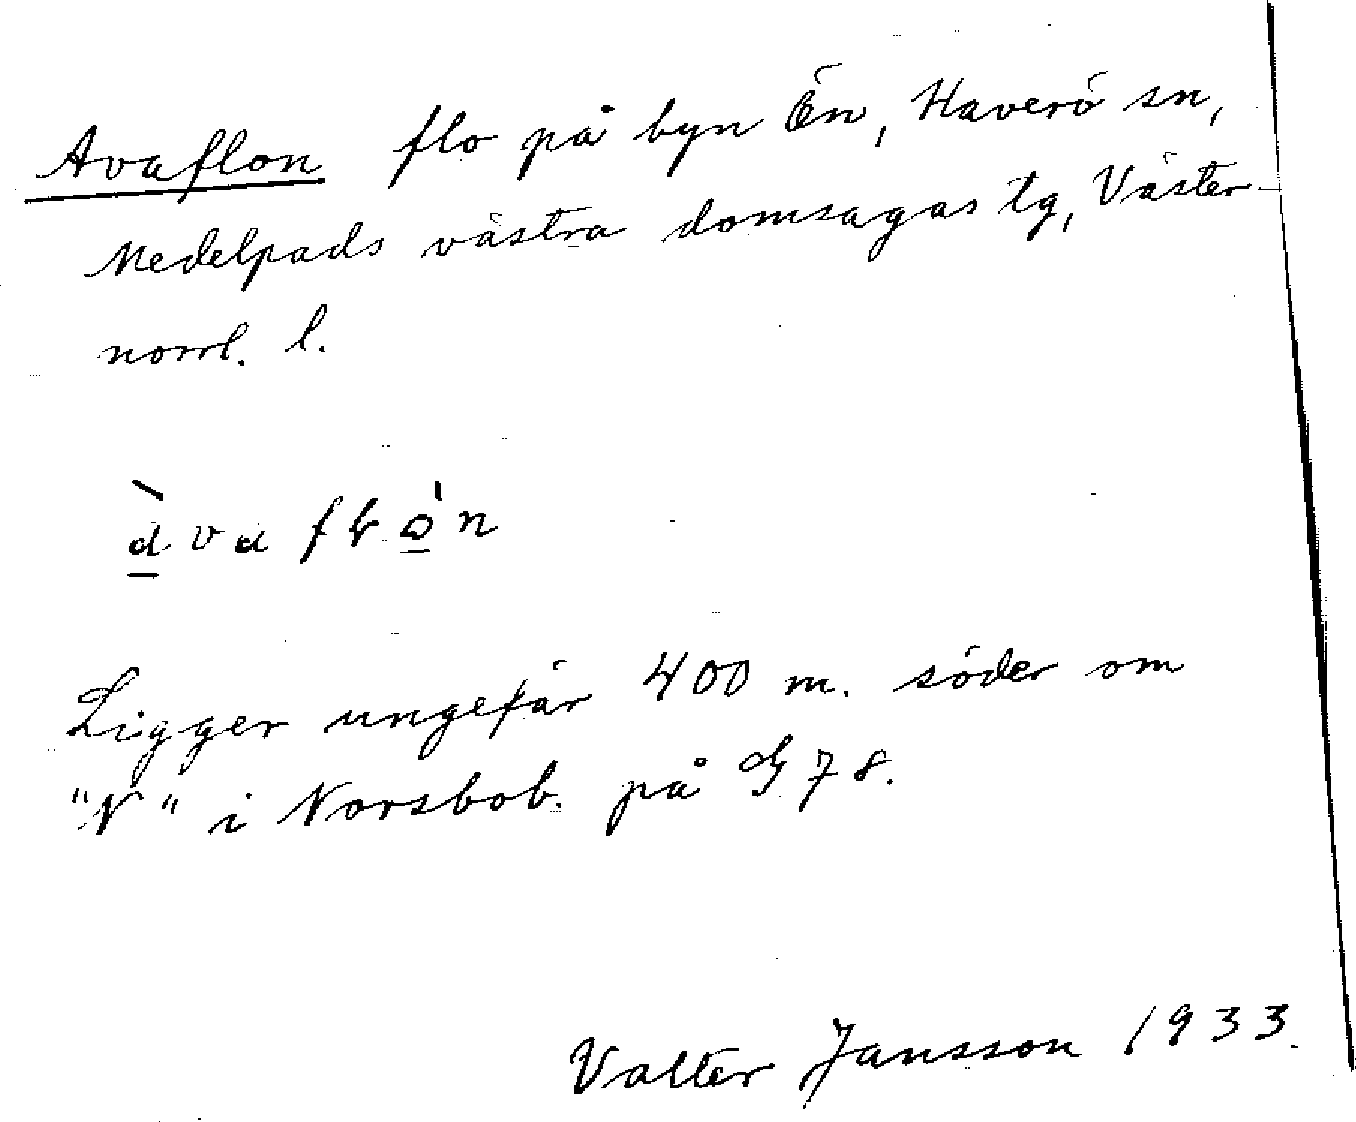 Avaflon flo på byn Ön, Haverö sn,
Medelpads västra domsagas tg, Väster-
norrl. l.
Ligger ungefär 400 m. söder om
"N" i Norsbob. på G 78.
Valter Jansson 1933.